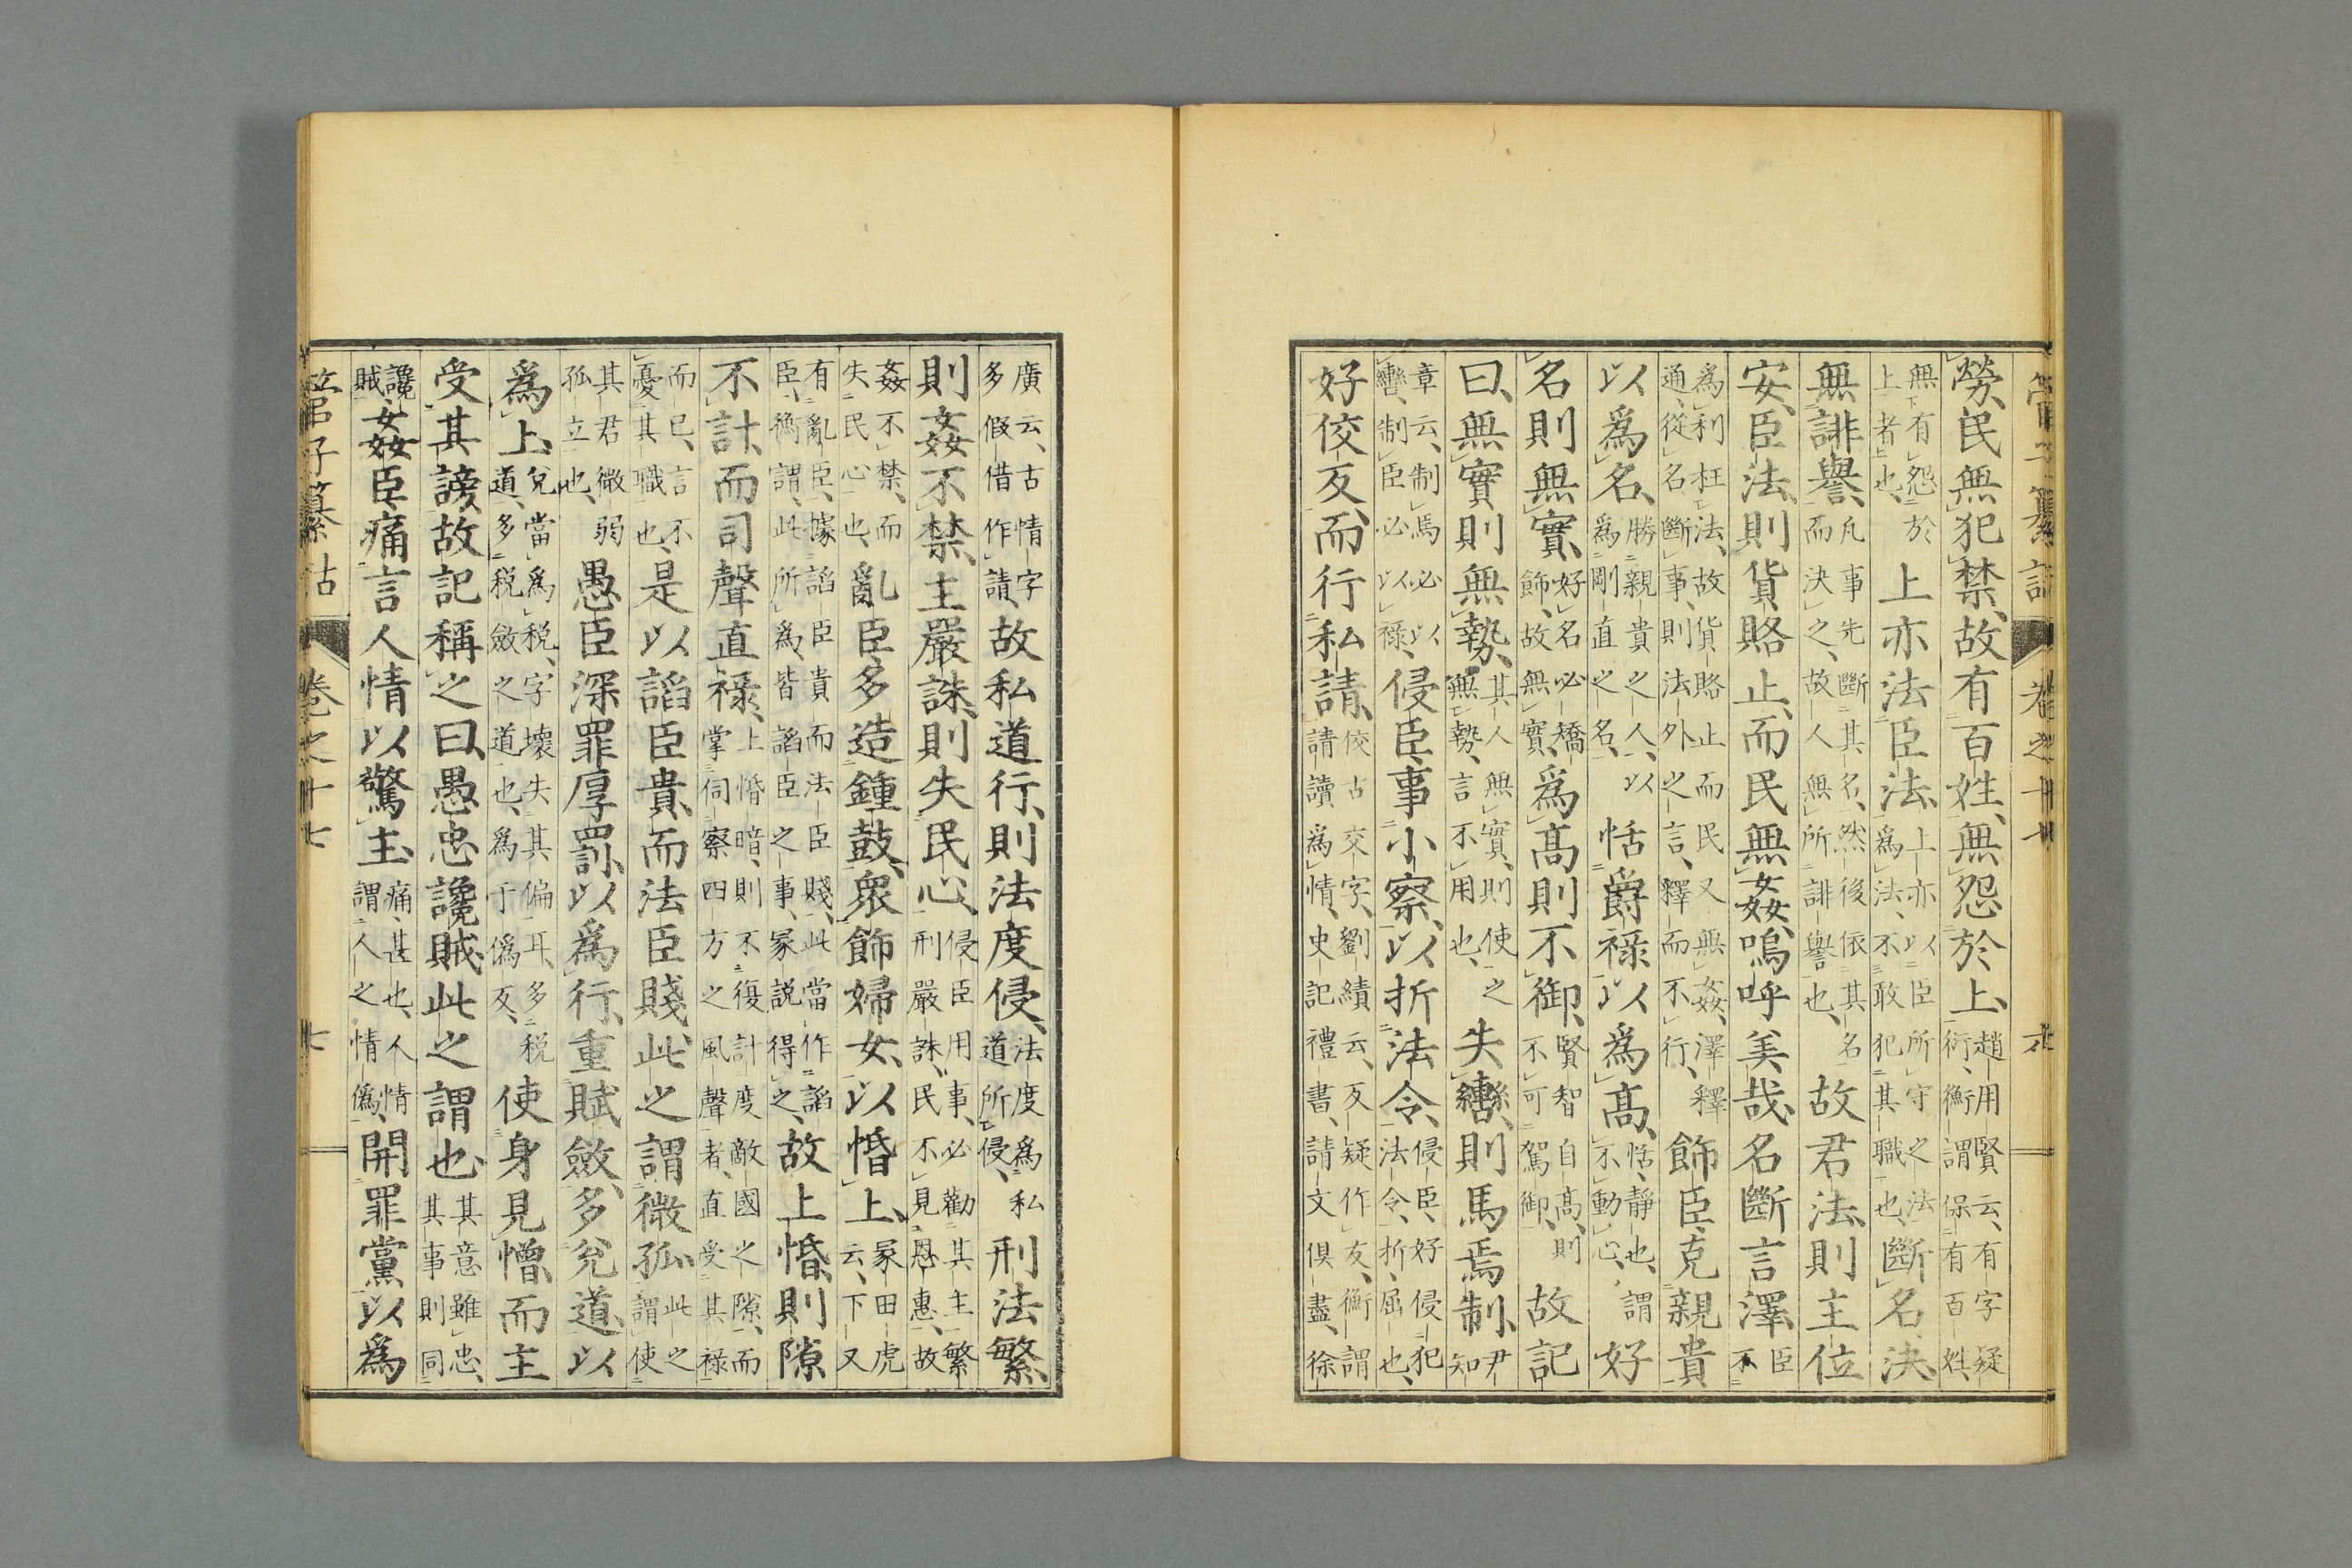 勞、民無犯禁、故有百姓、無怨於上、趙用賢云、有字疑衍、衡謂、保有百姓、
無有怨於上者也、上亦法臣法、上亦以臣所守之法爲法、不敢犯其職也、斷名決、
無誹譽、凡事先斷其名、然後依其名而決之、故人無所誹譽也、故君法、則主位
安、臣法、則貨賂止、而民無姦、嗚呼美哉、名斷言澤、臣不
爲利枉法、故貨賂止而民又無姦、澤釋通、從名斷事、則法外之言、釋而不行、飾臣、克親貴
以爲名、勝親貴之人、以爲剛直之名、恬爵祿以爲高、恬、靜也、謂不動心、好
名則無實、好名必矯飾、故無實、爲高則不御、賢智自高、則不可駕御、故記
曰、無實則無勢、其人無實、則使之無勢、言不用也、失轡、則馬焉制、尹知
章云、制馬必以轡、制臣必以祿、侵臣、事小察、以折法令、侵臣、好侵犯法令、折、屈也、
好佼反、而行私請、佼古交字、劉績云、反疑作友、衡謂請讀爲情、史記禮書、請文俱盡、徐
廣云、古情字多假借作請、故私道行、則法度侵、法度爲私道所侵、刑法繁、
則姦不禁、主嚴誅、則失民心、侵臣用事、必勸其主繁刑嚴誅、民不見恩惠、故
姦不禁、而失民心也、亂臣、多造鐘鼓、衆飾婦女、以惛上、冢田虎云、下又
有亂臣、據諂臣貴而法臣賤、此當作諂臣、衡謂、此所爲、皆諂臣之事、冢説得之、故上惛、則隙
不計、而司聲直祿、上惛暗、則不復計度敵國之隙、而掌伺察四方之風聲者、直受其祿
而已、言不憂其職也、是以諂臣貴、而法臣賤、此之謂微孤、此之謂使
其君微弱孤立也、愚臣深罪厚罰以爲行、重賦斂、多兌道、以
爲上、兌當爲税、字壞失其偏耳、多税道、多税斂之道也、爲于僞反、使身見憎、而主
受其謗、故記稱之曰、愚忠讒賊、此之謂也、其意雖忠、其事則同
讒賊、姦臣、痛言人情以驚主、痛、甚也、人情謂人之情僞、開罪黨以爲
管子纂詁 卷之十七 七